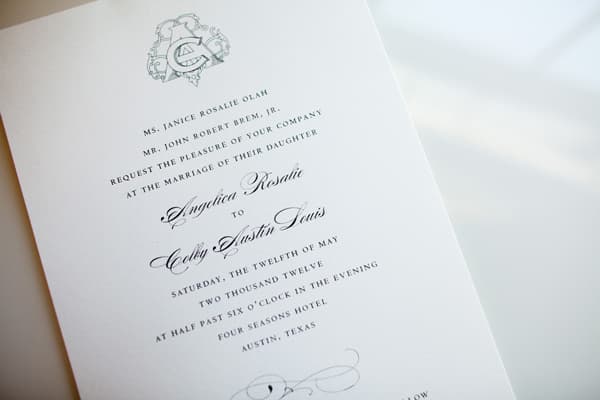 MS. JANICE ROSALIE OLAH
MR. JOHN ROBERT BREM, JR.
REQUEST THE PLEASURE OF YOUR COMPANY
AT THE MARRIAGE OF THEIR DAUGHTER
Angelica Rosalie
TO
Colby Austin Louis
SATURDAY, THE TWELFTH OF MAY
TWO THOUSAND TWELVE
AT HALF PAST SIX O'CLOCK IN THE EVENING
FOUR SEASONS HOTEL
AUSTIN, TEXAS